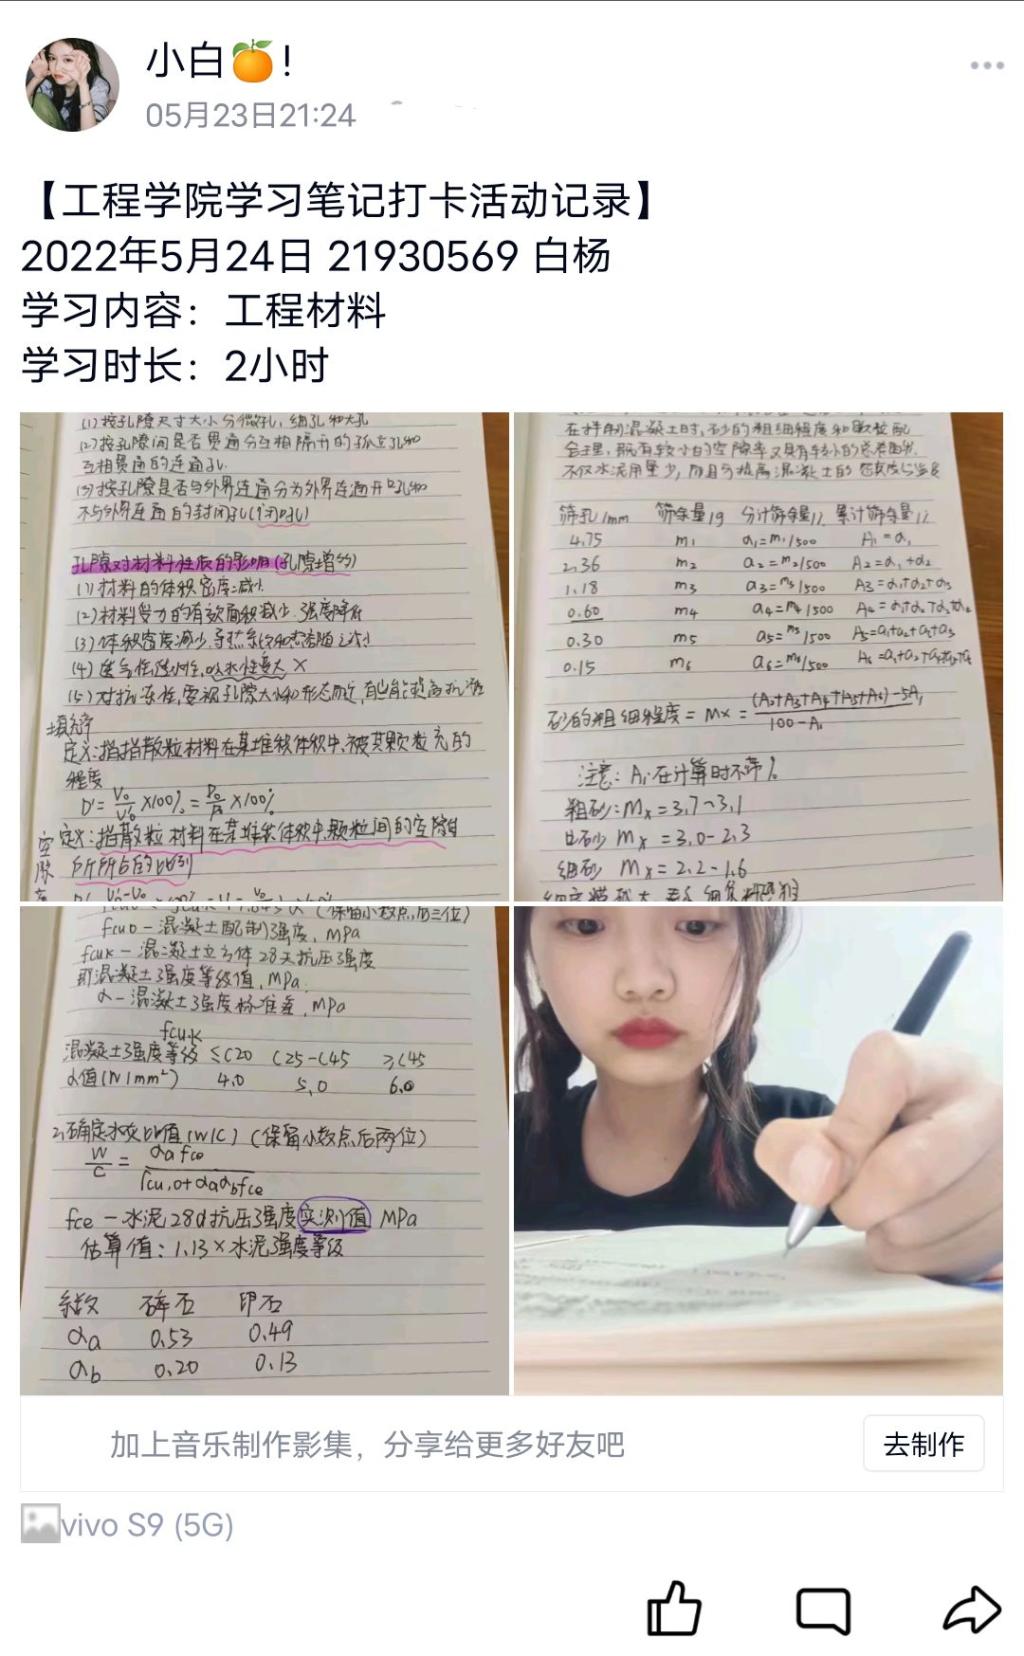 小白🍊!
05月23日21:24
【工程学院学习笔记打卡活动记录】
2022年5月24日 21930569 白杨
学习内容：工程材料
学习时长：2小时
(1)按孔隙尺寸大小分微孔,细孔和大孔
(2)按孔隙间是否贯通分互相隔开的孤立孔和
互相贯通的连通孔.
(3)按孔隙是否与外界连通分为外界连通开口孔和
不与外界连通的封闭孔(闭口孔)
孔隙对材料性质的影响(孔隙增多)
(1)材料的体积密度减小
(2)材料受力的有效面积减少.强度降低
(3)体积密度减少,导热系数和热容随之减小
(4)透气性透水性,吸水性变大 ×
(5)对抗冻性,要视孔隙大小和形态而定,有些能提高抗冻
填充率
定义:指指散粒材料在某堆积体积中,被其颗粒充的
程度
D'= V₀/V₀' ×100%= ρ₀'/ρ₀ ×100%
空隙率
定义:指散粒材料在某堆积体积中,颗粒间的空隙
所所占的比例
在拌制混凝土时,砂的粗细程度和颗粒级配
合理,既有较小的空隙率又具有较小的总表面积.
不仅水泥用量少,而且可提高混凝土的密实度与强度
筛孔/mm 筛余量/g 分计筛余量/% 累计筛余量/%
4.75 m₁ a₁=m₁/500 A₁=a₁
2.36 m₂ a₂=m₂/500 A₂=a₁+a₂
1.18 m₃ a₃=m₃/500 A₃=a₁+a₂+a₃
0.60 m₄ a₄=m₄/500 A₄=a₁+a₂+a₃+a₄
0.30 m₅ a₅=m₅/500
0.15 m₆ a₆=m₆/500
砂的粗细程度=Mx= (A₂+A₃+A₄+A₅+A₆)-5A₁ / 100-A₁
注意:A₁在计算时不带%
粗砂:Mx=3.7~3.1
中砂 Mx=3.0-2.3
细砂 Mx=2.2-1.6
(保留小数点后三位)
fcu0-混凝土配制强度,MPa
fcuk-混凝土立方体28天抗压强度
即混凝土强度等级值,MPa.
α-混凝土强度标准差,MPa
fcu.k
混凝土强度等级 ≤C20 C25-C45 ≥C45
α值(N/mm²) 4.0 5.0 6.0
2.确定水灰比值(W/C)(保留小数点后两位)
W/C = αa fce / fcu,0+αaαbfce
fce-水泥28d抗压强度实测值 MPa
估算值:1.13×水泥强度等级
系数 碎石 卵石
αa 0.53 0.49
αb 0.20 0.13
加上音乐制作影集，分享给更多好友吧
去制作
vivo S9 (5G)